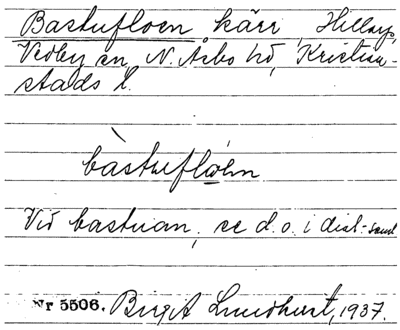 Bastufloen, kärr, Hillarp,
Vedby sn, N. Åsbo hd, Kristian-
stads l.
bàstuflo̱hn
Vid bastuan, se d.o. i dial-saml
Nr 5506. Birgit Lundqvist, 1937.